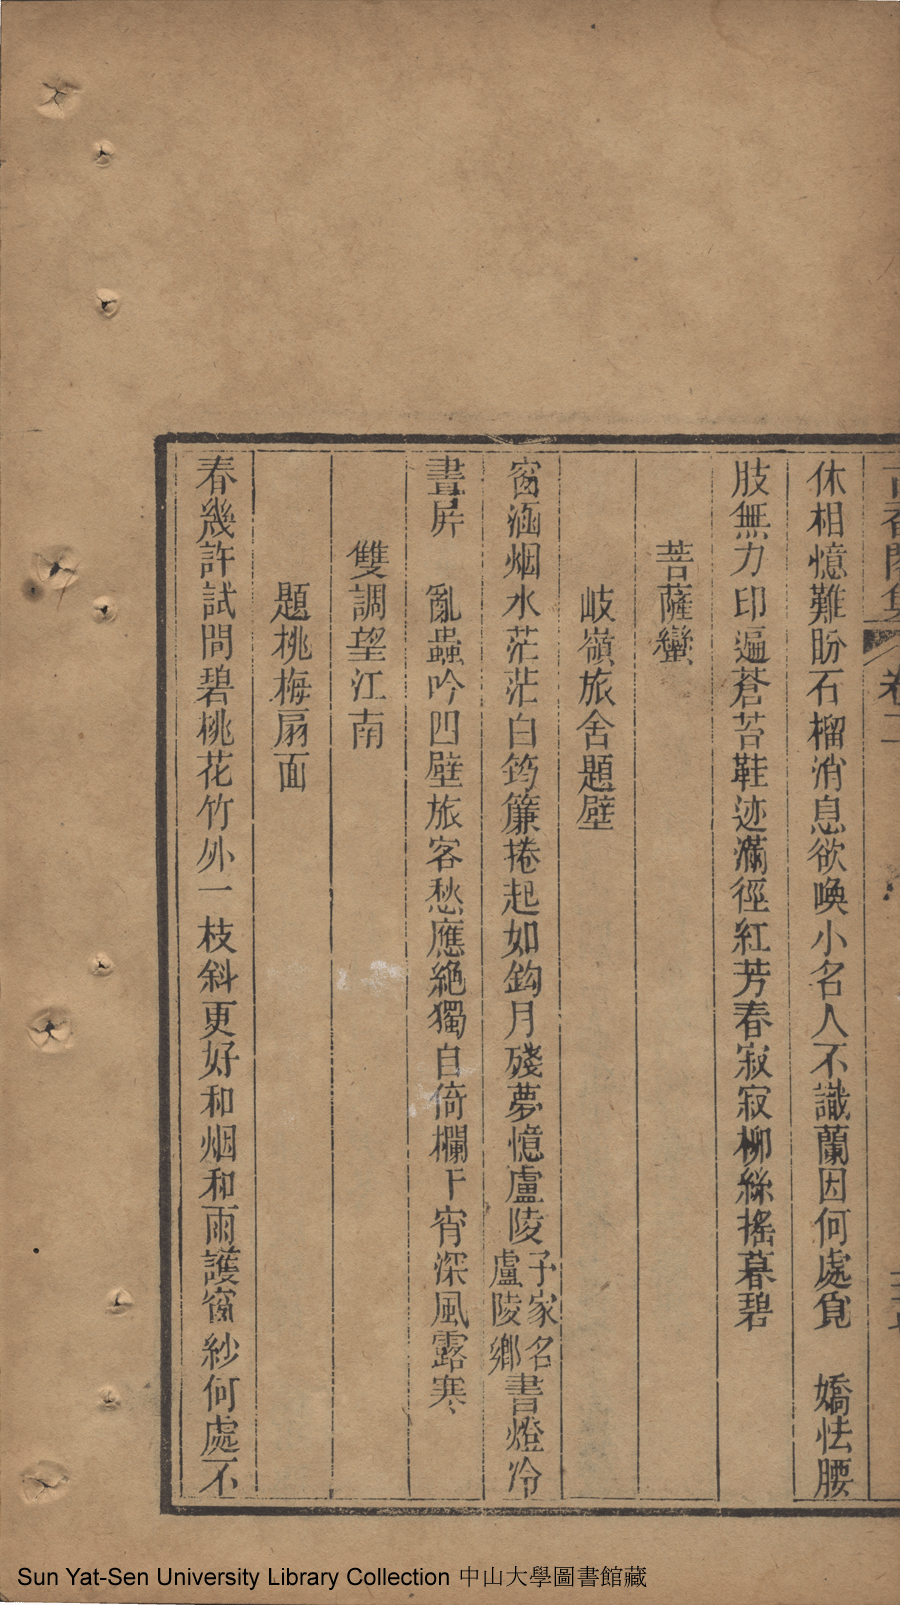 古香閣集 卷二
休相憶難盼石榴消息欲喚小名人不識蘭因何處覓　嬌怯腰
肢無力印遍蒼苔鞋迹滿徑紅芳春寂寂柳絲搖暮碧
菩薩蠻
岐嶺旅舍題壁
窗涵烟水茫茫白筠簾捲起如鈎月殘夢憶盧陵予家名盧陵鄉書燈冷
畫屏　亂蟲吟四壁旅客愁應絕獨自倚欄干宵深風露寒
雙調望江南
題桃梅扇面
春幾許試間碧桃花竹外一枝斜更好和烟和雨護窗紗何處不
Sun Yat-Sen University Library Collection 中山大學圖書館藏